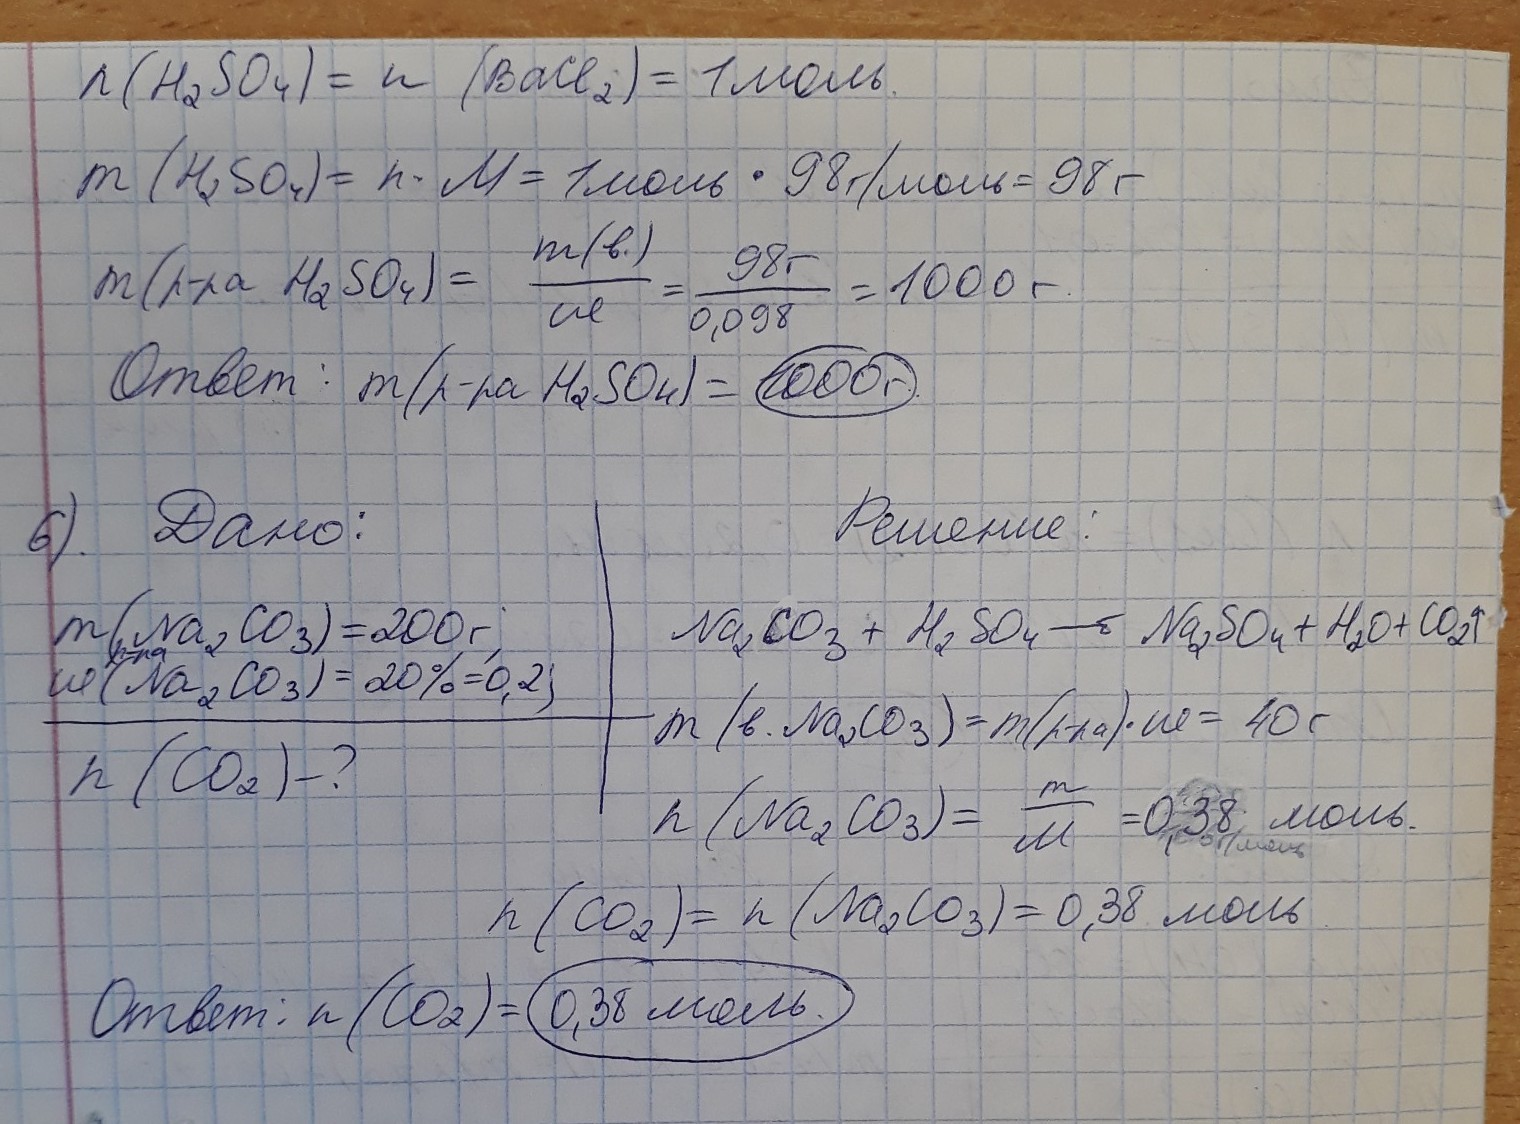 n(H₂SO₄) = n (BaCl₂) = 1 моль.
m (H₂SO₄) = n · M = 1 моль · 98 г/моль = 98 г
m(р-ра H₂SO₄) = m(в.)/ω = 98 г/0,098 = 1000 г.
Ответ: m(р-ра H₂SO₄) = 1000 г.
6). Дано:
m(р-ра Na₂CO₃) = 200 г;
ω(Na₂CO₃) = 20% = 0,2;
n (CO₂) – ?
Решение:
Na₂CO₃ + H₂SO₄ → Na₂SO₄ + H₂O + CO₂↑
m (в. Na₂CO₃) = m(р-ра) · ω = 40 г
n (Na₂CO₃) = m/M = 0,38 моль.
n (CO₂) = n (Na₂CO₃) = 0,38 моль
Ответ: n (CO₂) = 0,38 моль.